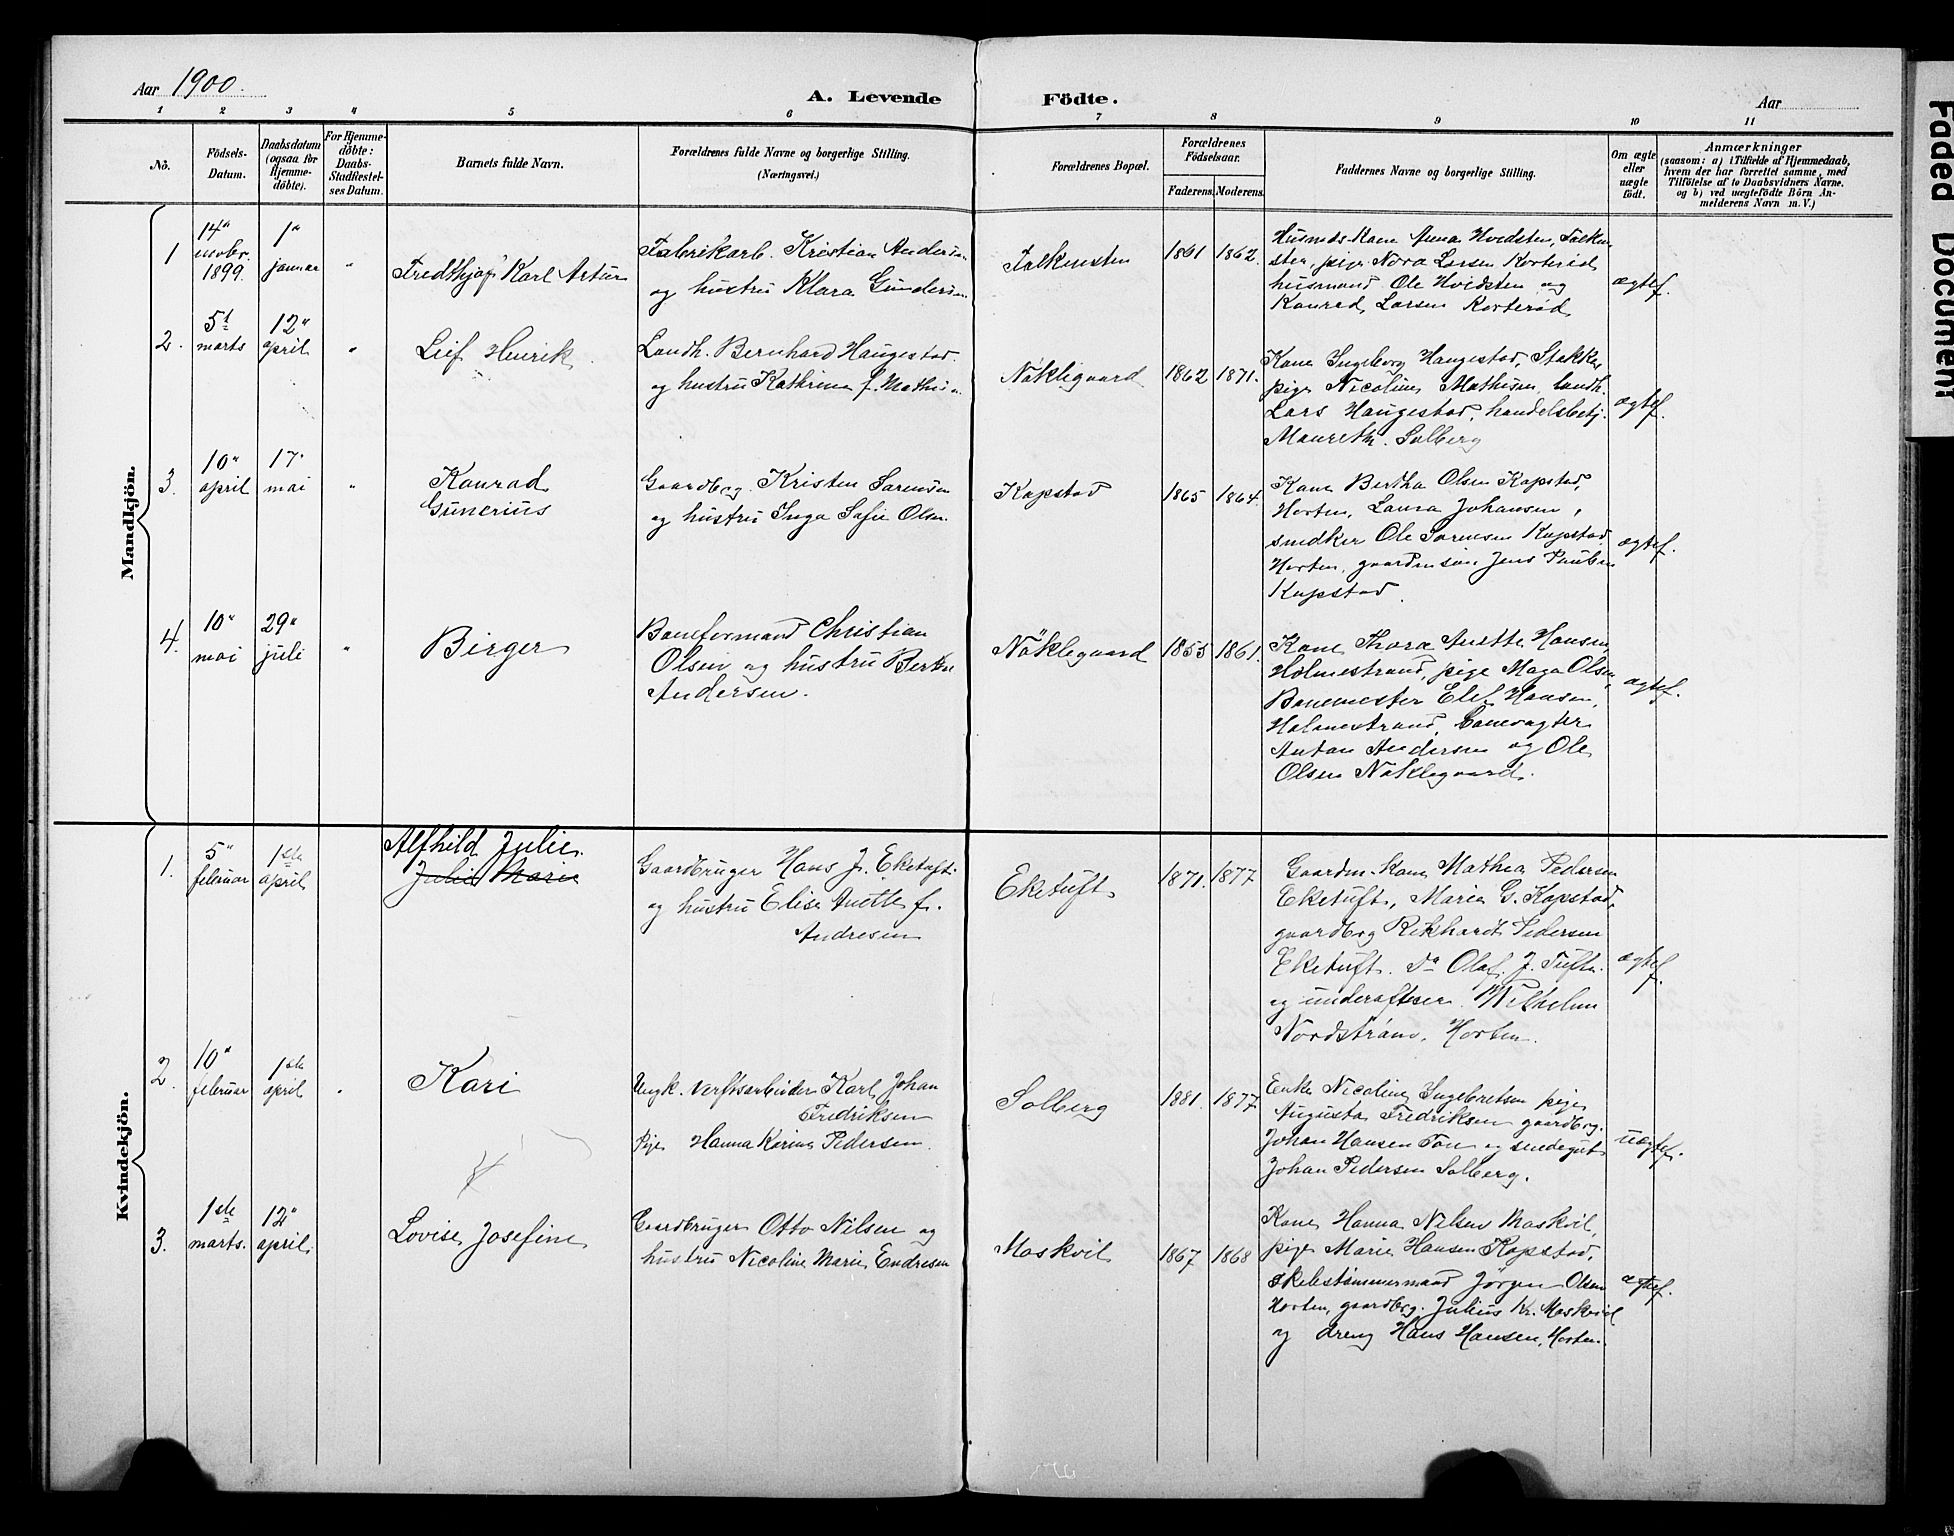 Aar 1900.
A. Levende Födte.
Aar
1 2 3 4 5 6 7 8 9 10 11
No.
Födsels-
Datum.
Daabsdatum
(ogsaa for
Hjemme-
döbte).
For Hjemme-
döbte:
Daabs-
Stadfæstel-
ses Datum.
Barnets fulde Navn.
Forældrenes fulde Navne og borgerlige Stilling.
(Næringsvei.)
Forældrenes Bopæl.
Forældrenes
Födselsaar.
Faderens. Moderens.
Faddernes Navne og borgerlige Stilling.
Om ægte
eller
uægte
födt.
Anmærkninger
(saasom: a) i Tilfælde af Hjemmedaab,
hvem der har forrettet samme, med
Tilföielse af to Daabsvidners Navne.
og b) ved uægtefödte Börn An-
melderens Navn m. V.)
Mandkjön.
1
14"
novbr.
1899.
1"
januar
"
Fredthjof Karl Artur
Fabrikarb. Kristian Andersen
og hustru Klara Gundersen
Falkensten
1861 1862.
Husmds. Kone Anna Hvidsten, Falken
sten, pige Nora Larsen Korterød
husmand Ole Hvidsten og
Konrad Larsen Korterød
ægtef.
2.
5t
marts
12"
april
"
Leif Henrik
Landh. Bernhard Haugestad.
og hustru Kathrine f. Mathisen
Nökleguard
1862 1871.
Kone Ingeborg Haugestad, Stokke,
pige Nicoline Mathisen, landh.
Lars Haugestad, handelsbetj.
Mauretz. Solberg
ægtef.
3.
10"
april
17"
mai
"
Konrad
Gunerius
Gaardbrg. Kristen Sørensen
og hustru Inga Sofie Olsen.
Kopstad
1865 1864.
Kone Bertha Olsen Kopstad,
Horten, Laura Johansen,
snedker Ole Sørensen Kopstad
Horten, gaardmsøn. Jens Paulsen
Kopstad.
ægtef.
4.
10"
mai
29"
juli
"
Birger
Baneformand Christian
Olsen og hustru Berthe
Andersen.
Nöklegaard
1855 1861.
Kone Thora Anette Hansen
Holmestrand, pige Maga Olsen,
Banemester Elef Hansen,
Holmestrand, banevagter
Anton Andersen og Ole
Olsen Nöklegaard.
ægtef.
Kvindekjön.
1.
5"
februar
1ste
april
Alfhild Julie.
Julie Marie
Gaardbruger Hans J. Eketuft.
og hustru Elise Anette f.
Andresen
Eketuft
1871. 1877
Gaardm. Kone Mathea Pedersen
Eketuft, Marie G. Kopstad,
gaardbrg Rikhardt Pedersen
Eketuft. Do Olaf. J. Tuften.
og underofficer. Wilhelm
Nordström, Horten.
ægtef.
2.
10"
februar
1ste
april
"
Kari
Ungk. Verftsarbeider Karl Johan
Fredriksen
Pige Hanna Karine Pedersen.
Solberg
1881. 1877
Enke Nicoline Ingebretsen pige
Augusta Fredriksen gaardbrg.
Johan Hansen Ton og smedegut
Johan Pedersen Solberg.
uægtef.
3.
1ste
marts.
12"
april.
Lovise Josefine
Gaardbruger Otto Nilsen og
hustru Nicoline Marie Endresen
Moskvil
1867 1868
Kone Hanna Nilsen Moskvil,
pige Marie Hansen Kopstad,
skibstømmermand Jörgen Olsen
Horten, gaardbrg. Julius Kr. Moskvil
og dreng Hans Hansen, Horten.
ægtef.
Faded Document